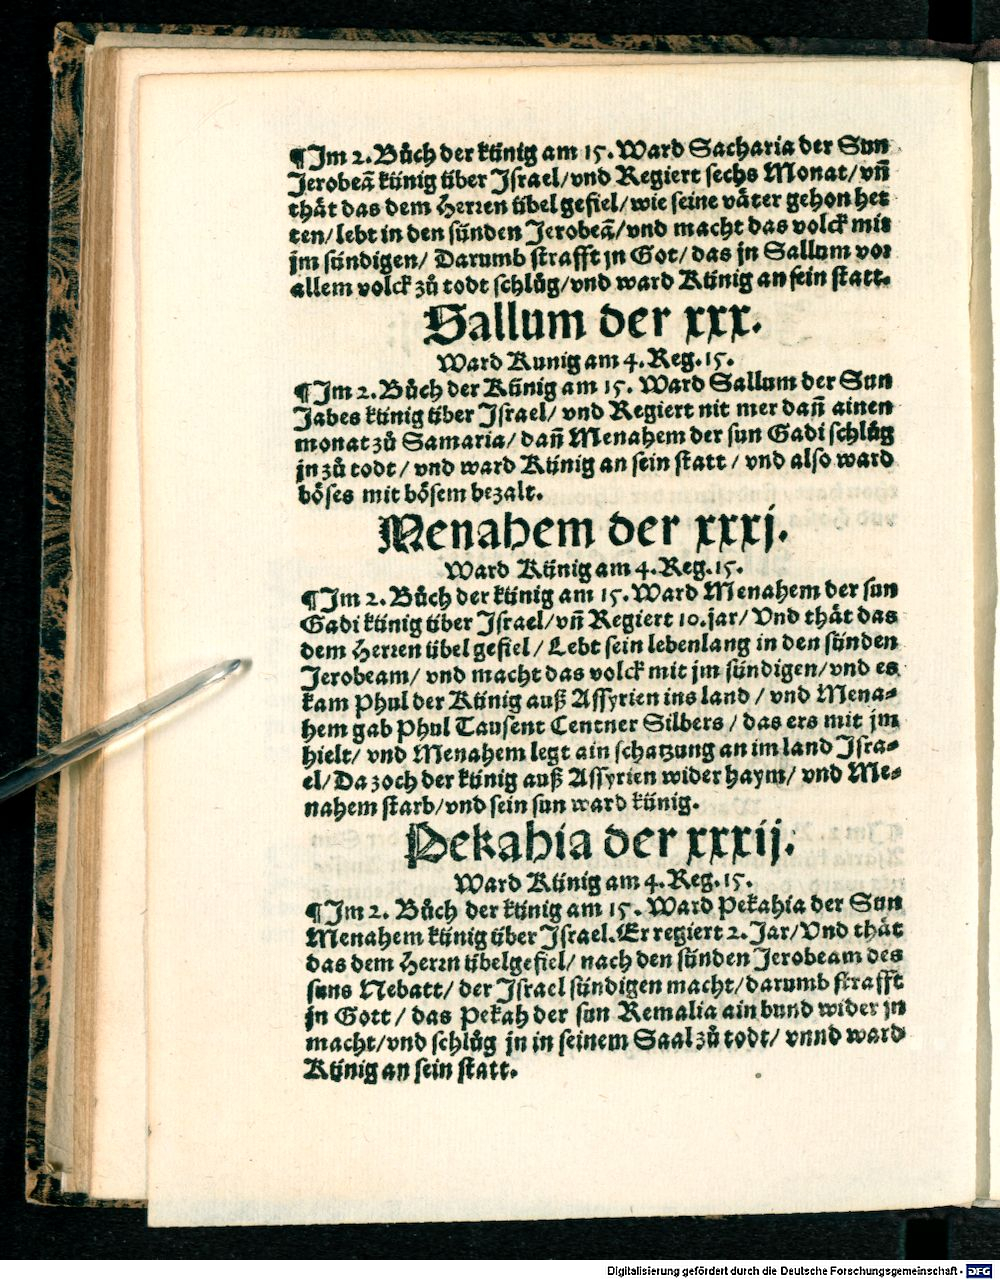 ¶Im 2. Bůch der künig am 15. Ward Sacharia der Sun
Jerobeã künig über Israel/ vnd Regiert sechs Monat/ vñ
thåt das dem Herren übel gefiel/ wie seine våter gehon het
ten/ lebt in den sünden Jerobeã/ vnd macht das volck mit
jm sündigen/ Darumb strafft jn Got/ das jn Sallum vor
allem volck zů todt schlůg/ vnd ward Künig an sein statt.
Sallum der xxx.
Ward Kunig am 4. Reg. 15.
¶Im 2. Bůch der Künig am 15. Ward Sallum der Sun
Jabes künig über Israel/ vnd Regiert nit mer dañ ainen
monat zů Samaria/ dañ Menahem der sun Gadi schlůg
jn zů todt/ vnd ward Künig an sein statt/ vnd also ward
böses mit bösem bezalt.
Menahem der xxxj.
Ward Künig am 4. Reg. 15.
¶Im 2. Bůch der künig am 15. Ward Menahem der sun
Gadi künig über Israel/ vñ Regiert 10. jar/ Vnd thåt das
dem Herren übel gefiel/ Lebt sein lebenlang in den sünden
Jerobeam/ vnd macht das volck mit jm sündigen/ vnd es
kam Phul der Künig auß Assyrien ins land/ vnd Mena-
hem gab Phul Tausent Centner Silbers/ das ers mit jm
hielt/ vnd Menahem legt ain schatzung an im land Isra-
el/ Da zoch der künig auß Assyrien wider haym/ vnd Me-
nahem starb/ vnd sein sun ward künig.
Pekahia der xxxij:
Ward Künig am 4. Reg. 15.
¶Im 2. Bůch der künig am 15. Ward Pekahia der Sun
Menahem künig über Israel. Er regiert 2. Jar/ Vnd thåt
das dem Herrn übelgefiel/ nach den sünden Jerobeam des
suns Nebatt/ der Israel sündigen macht/ darumb strafft
jn Gott/ das Pekah der sun Remalia ain bund wider jn
macht/ vnd schlůg jn in seinem Saal zů todt/ vnnd ward
Künig an sein statt.
Digitalisierung gefördert durch die Deutsche Forschungsgemeinschaft - DFG